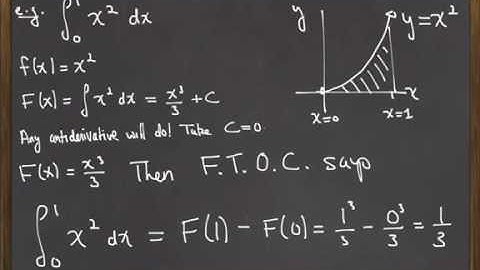 e.g. ∫₀¹ x² dx
f(x) = x²
F(x) = ∫ x² dx = x³/3 + C
Any antiderivative will do! Take C=0
F(x) = x³/3 Then F.T.O.C. says
∫₀¹ x² dx = F(1) − F(0) = 1³/3 − 0³/3 = 1/3
y
y=x²
x
x=0
x=1